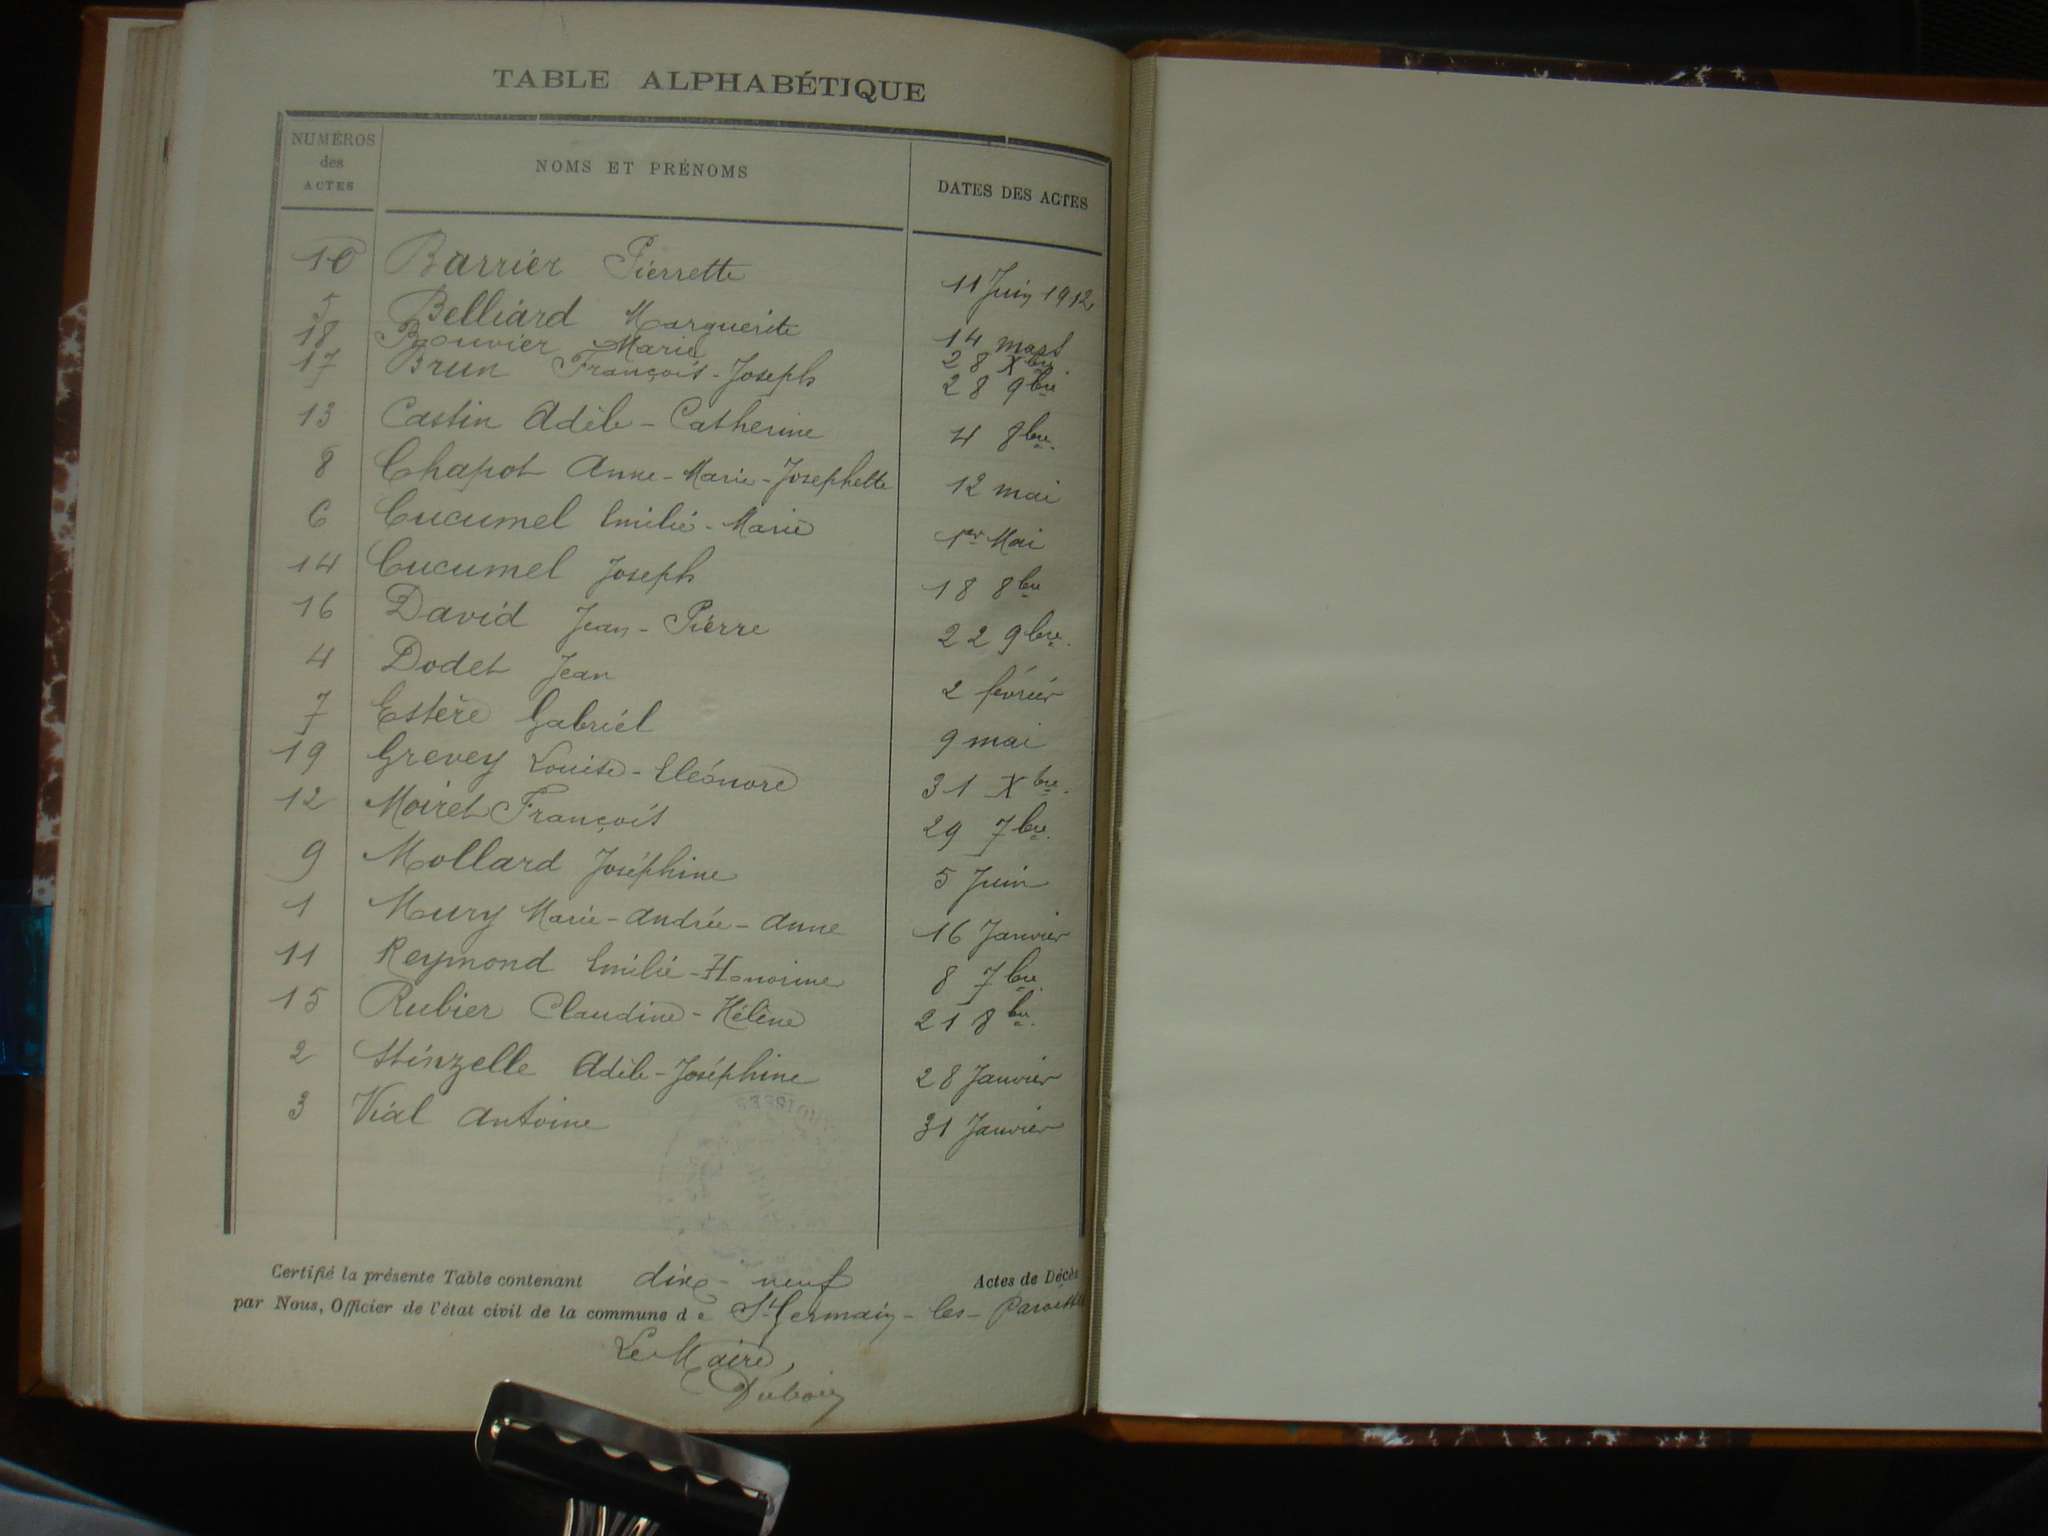 TABLE ALPHABÉTIQUE
NUMÉROS des ACTES NOMS ET PRÉNOMS DATES DES ACTES
10 Barrier Pierrette 11 Juin 1912
5 Belliard Marguerite 14 mars
18 Bouvier Marie 28 Xbre
17 Brun François-Joseph 28 9bre
13 Castin Adèle-Catherine 4 8bre.
8 Chapot Anne-Marie-Josephette 12 mai
6 Cucumel Emilie-Marie 1er Mai
14 Cucumel Joseph 18 8bre
16 David Jean-Pierre 22 9bre.
4 Dodet Jean 2 février
7 Estère Gabriel 9 mai
19 Grevey Louise-Eléonore 31 Xbre.
12 Moiret François 29 7bre.
9 Mollard Joséphine 5 Juin
1 Mury Marie-Andrée-Anne 16 Janvier
11 Reymond Emilie-Honorine 8 7bre.
15 Rubier Claudine-Hélène 21 8bre.
2 Stinzelle Adèle-Joséphine 28 Janvier
3 Vial Antoine 31 Janvier
Certifié la présente Table contenant dix-neuf Actes de Décès
par Nous, Officier de l'état civil de la commune de St Germain-les-Paroisses
Le Maire,
Dubois